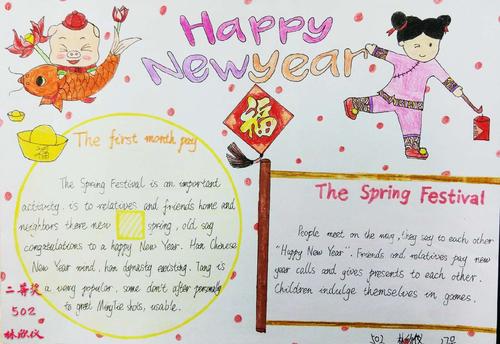 Happy
New year
福
福
The first month pay
The Spring Festival is an important
activity. is to relatives and friends home and
neighbors there new spring, old say
congratulations to a happy New Year. Han Chinese
New Year wind, han dynasty existing. Tang is
a very popular, some don't after personally
to greet MingTie shots, usable.
二等奖
502
The Spring Festival
People meet on the way, they say to each other
"Happy New Year". Friends and relatives pay new
year calls and gives presents to each other.
Children indulge themselves in games.
502